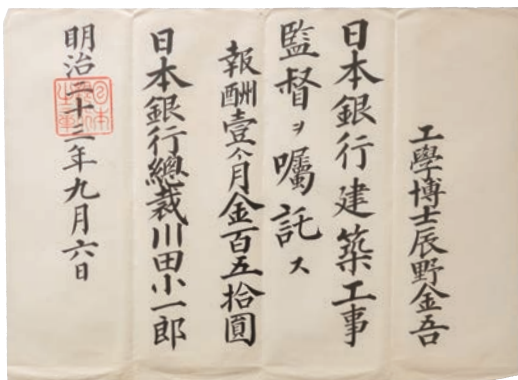 工學博士辰野金吾
日本銀行建築工事
監督ヲ囑託ス
報酬壹ヶ月金百五拾圓
日本銀行總裁川田小一郎
明治二十三年九月六日